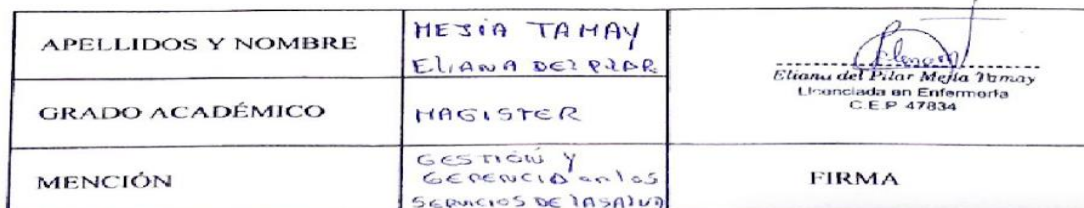 APELLIDOS Y NOMBRE
MEJÍA TAMAY
ELIANA DEL PILAR
Eliana del Pilar Mejía Tamay
Licenciada en Enfermería
C.E.P 47834
GRADO ACADÉMICO
MAGISTER
MENCIÓN
GESTIÓN Y
GERENCIA en los
SERVICIOS DE LA SALUD
FIRMA